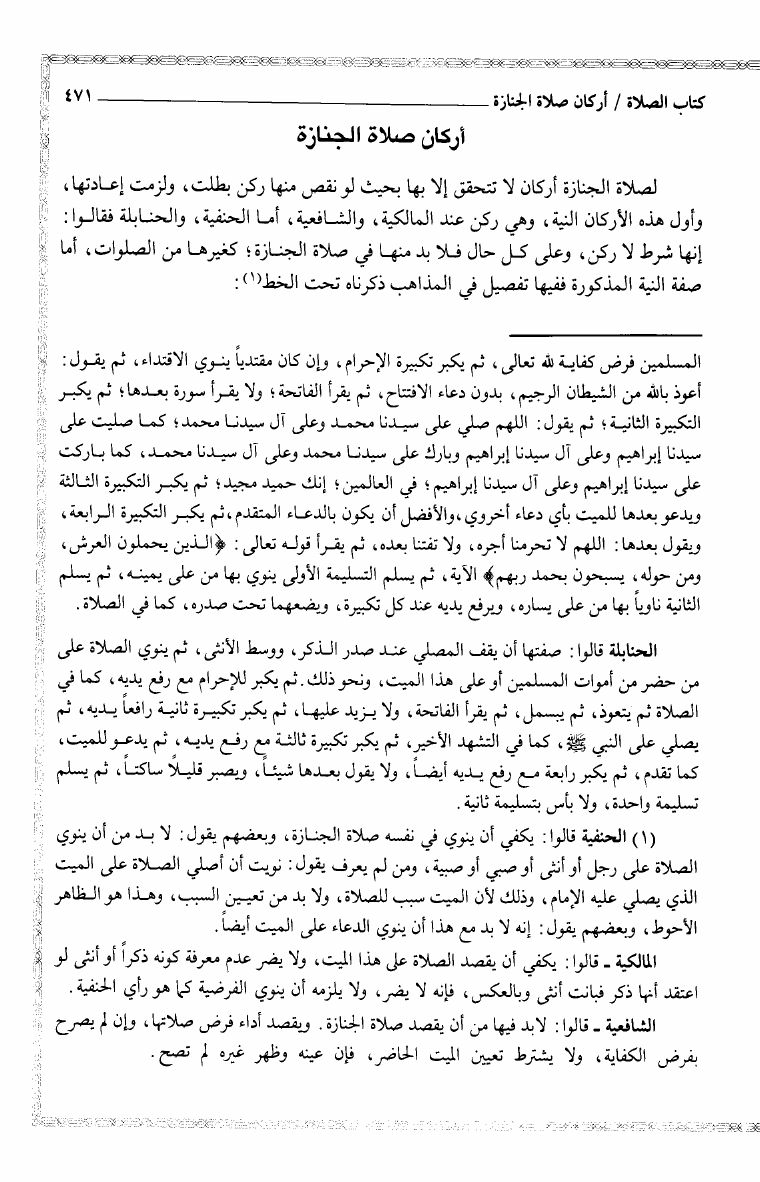 كتاب الصلاة / أركان صلاة الجنازة ٤٧١
أركان صلاة الجنازة
لصلاة الجنازة أركان لا تتحقق إلا بها بحيث لو نقص منها ركن بطلت، ولزمت إعادتها،
وأول هذه الأركان النية، وهي ركن عند المالكية، والشافعية، أما الحنفية، والحنابلة فقالوا:
إنها شرط لا ركن، وعلى كل حال فلا بد منها في صلاة الجنازة؛ كغيرها من الصلوات، أما
صفة النية المذكورة ففيها تفصيل في المذاهب ذكرناه تحت الخط(١):
المسلمين فرض كفاية لله تعالى، ثم يكبر تكبيرة الإحرام، وإن كان مقتدياً ينوي الاقتداء، ثم يقول:
أعوذ بالله من الشيطان الرجيم، بدون دعاء الافتتاح، ثم يقرأ الفاتحة؛ ولا يقرأ سورة بعدها؛ ثم يكبر
التكبيرة الثانية؛ ثم يقول: اللهم صلي على سيدنا محمد وعلى آل سيدنا محمد؛ كما صليت على
سيدنا إبراهيم وعلى آل سيدنا إبراهيم وبارك على سيدنا محمد وعلى آل سيدنا محمد، كما باركت
على سيدنا إبراهيم وعلى آل سيدنا إبراهيم؛ في العالمين؛ إنك حميد مجيد؛ ثم يكبر التكبيرة الثالثة
ويدعو بعدها للميت بأي دعاء أخروي،والأفضل أن يكون بالدعاء المتقدم،ثم يكبر التكبيرة الرابعة،
ويقول بعدها: اللهم لا تحرمنا أجره، ولا تفتنا بعده، ثم يقرأ قوله تعالى: ﴿الذين يحملون العرش،
ومن حوله، يسبحون بحمد ربهم﴾ الآية، ثم يسلم التسليمة الأولى ينوي بها من على يمينه، ثم يسلم
الثانية ناوياً بها من على يساره، ويرفع يديه عند كل تكبيرة، ويضعهما تحت صدره، كما في الصلاة.
الحنابلة قالوا: صفتها أن يقف المصلي عند صدر الذكر، ووسط الأنثى، ثم ينوي الصلاة على
من حضر من أموات المسلمين أو على هذا الميت، ونحو ذلك.ثم يكبر للإحرام مع رفع يديه، كما في
الصلاة ثم يتعوذ، ثم يبسمل، ثم يقرأ الفاتحة، ولا يزيد عليها، ثم يكبر تكبيرة ثانية رافعاً يديه، ثم
يصلي على النبي ﷺ، كما في التشهد الأخير، ثم يكبر تكبيرة ثالثة مع رفع يديه، ثم يدعو للميت،
كما تقدم، ثم يكبر رابعة مع رفع يديه أيضاً، ولا يقول بعدها شيئاً، ويصبر قليلاً ساكتاً، ثم يسلم
تسليمة واحدة، ولا بأس بتسليمة ثانية.
(١) الحنفية قالوا: يكفي أن ينوي في نفسه صلاة الجنازة، وبعضهم يقول: لا بد من أن ينوي
الصلاة على رجل أو أنثى أو صبي أو صبية، ومن لم يعرف يقول: نويت أن أصلي الصلاة على الميت
الذي يصلي عليه الإمام، وذلك لأن الميت سبب للصلاة، ولا بد من تعيين السبب، وهذا هو الظاهر
الأحوط، وبعضهم يقول: إنه لا بد مع هذا أن ينوي الدعاء على الميت أيضاً.
المالكية ـ قالوا: يكفي أن يقصد الصلاة على هذا الميت، ولا يضر عدم معرفة كونه ذكراً أو أنثى لو
اعتقد أنها ذكر فبانت أنثى وبالعكس، فإنه لا يضر، ولا يلزمه أن ينوي الفرضية كما هو رأي الحنفية.
الشافعية ـ قالوا: لابد فيها من أن يقصد صلاة الجنازة. ويقصد أداء فرض صلاتها، وإن لم يصرح
بفرض الكفاية، ولا يشترط تعيين الميت الحاضر، فإن عينه وظهر غيره لم تصح.